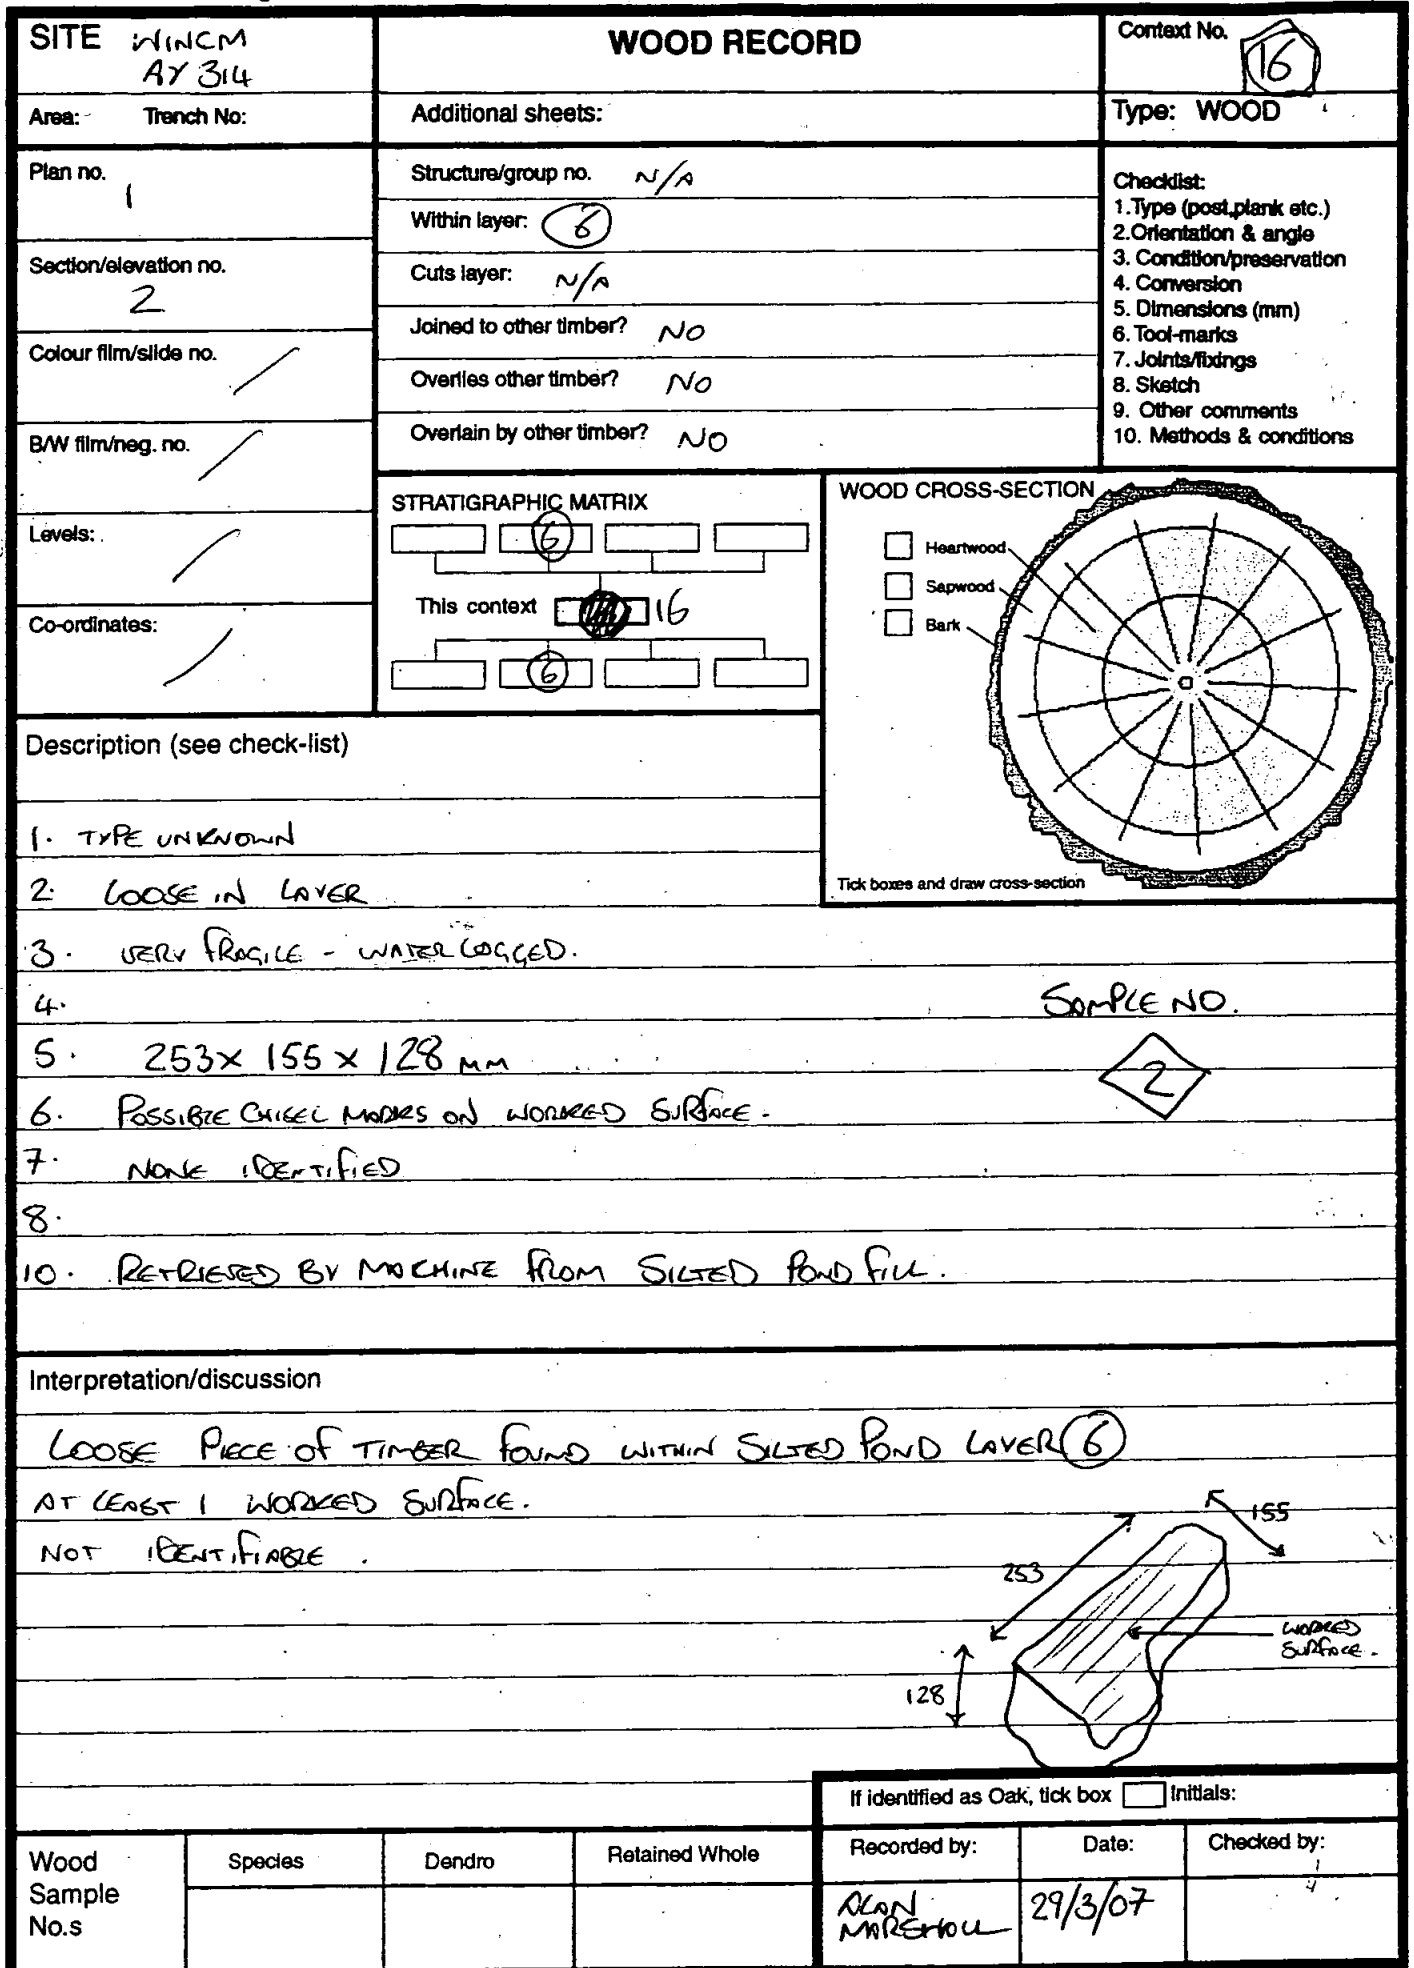 SITE WINCM
AY 314
WOOD RECORD
Context No.
16
Area: Trench No:
Additional sheets:
Type: WOOD
Plan no.
1
Structure/group no. N/A
Within layer: 6
Section/elevation no.
2
Cuts layer: N/A
Joined to other timber? NO
Colour film/slide no. /
Overlies other timber? NO
B/W film/neg. no. /
Overlain by other timber? NO
Checklist:
1.Type (post,plank etc.)
2.Orientation & angle
3. Condition/preservation
4. Conversion
5. Dimensions (mm)
6. Tool-marks
7. Joints/fixings
8. Sketch
9. Other comments
10. Methods & conditions
Levels: /
Co-ordinates: /
STRATIGRAPHIC MATRIX
6
This context 16
6
WOOD CROSS-SECTION
Heartwood
Sapwood
Bark
Tick boxes and draw cross-section
Description (see check-list)
1. TYPE UNKNOWN
2. LOOSE IN LAYER
3. VERY FRAGILE - WATERLOGGED.
4.
SAMPLE NO.
2
5. 253 x 155 x 128 mm
6. POSSIBLE CHISEL MARKS ON WORKED SURFACE.
7. NONE IDENTIFIED
8.
10. RETRIEVED BY MACHINE FROM SILTED POND FILL.
Interpretation/discussion
LOOSE PIECE OF TIMBER FOUND WITHIN SILTED POND LAYER 6
AT LEAST 1 WORKED SURFACE.
NOT IDENTIFIABLE.
155
253
WORKED
SURFACE.
128
If identified as Oak, tick box Initials:
Wood
Sample
No.s
Species
Dendro
Retained Whole
Recorded by:
Date:
Checked by:
ALAN
MARSHALL
29/3/07